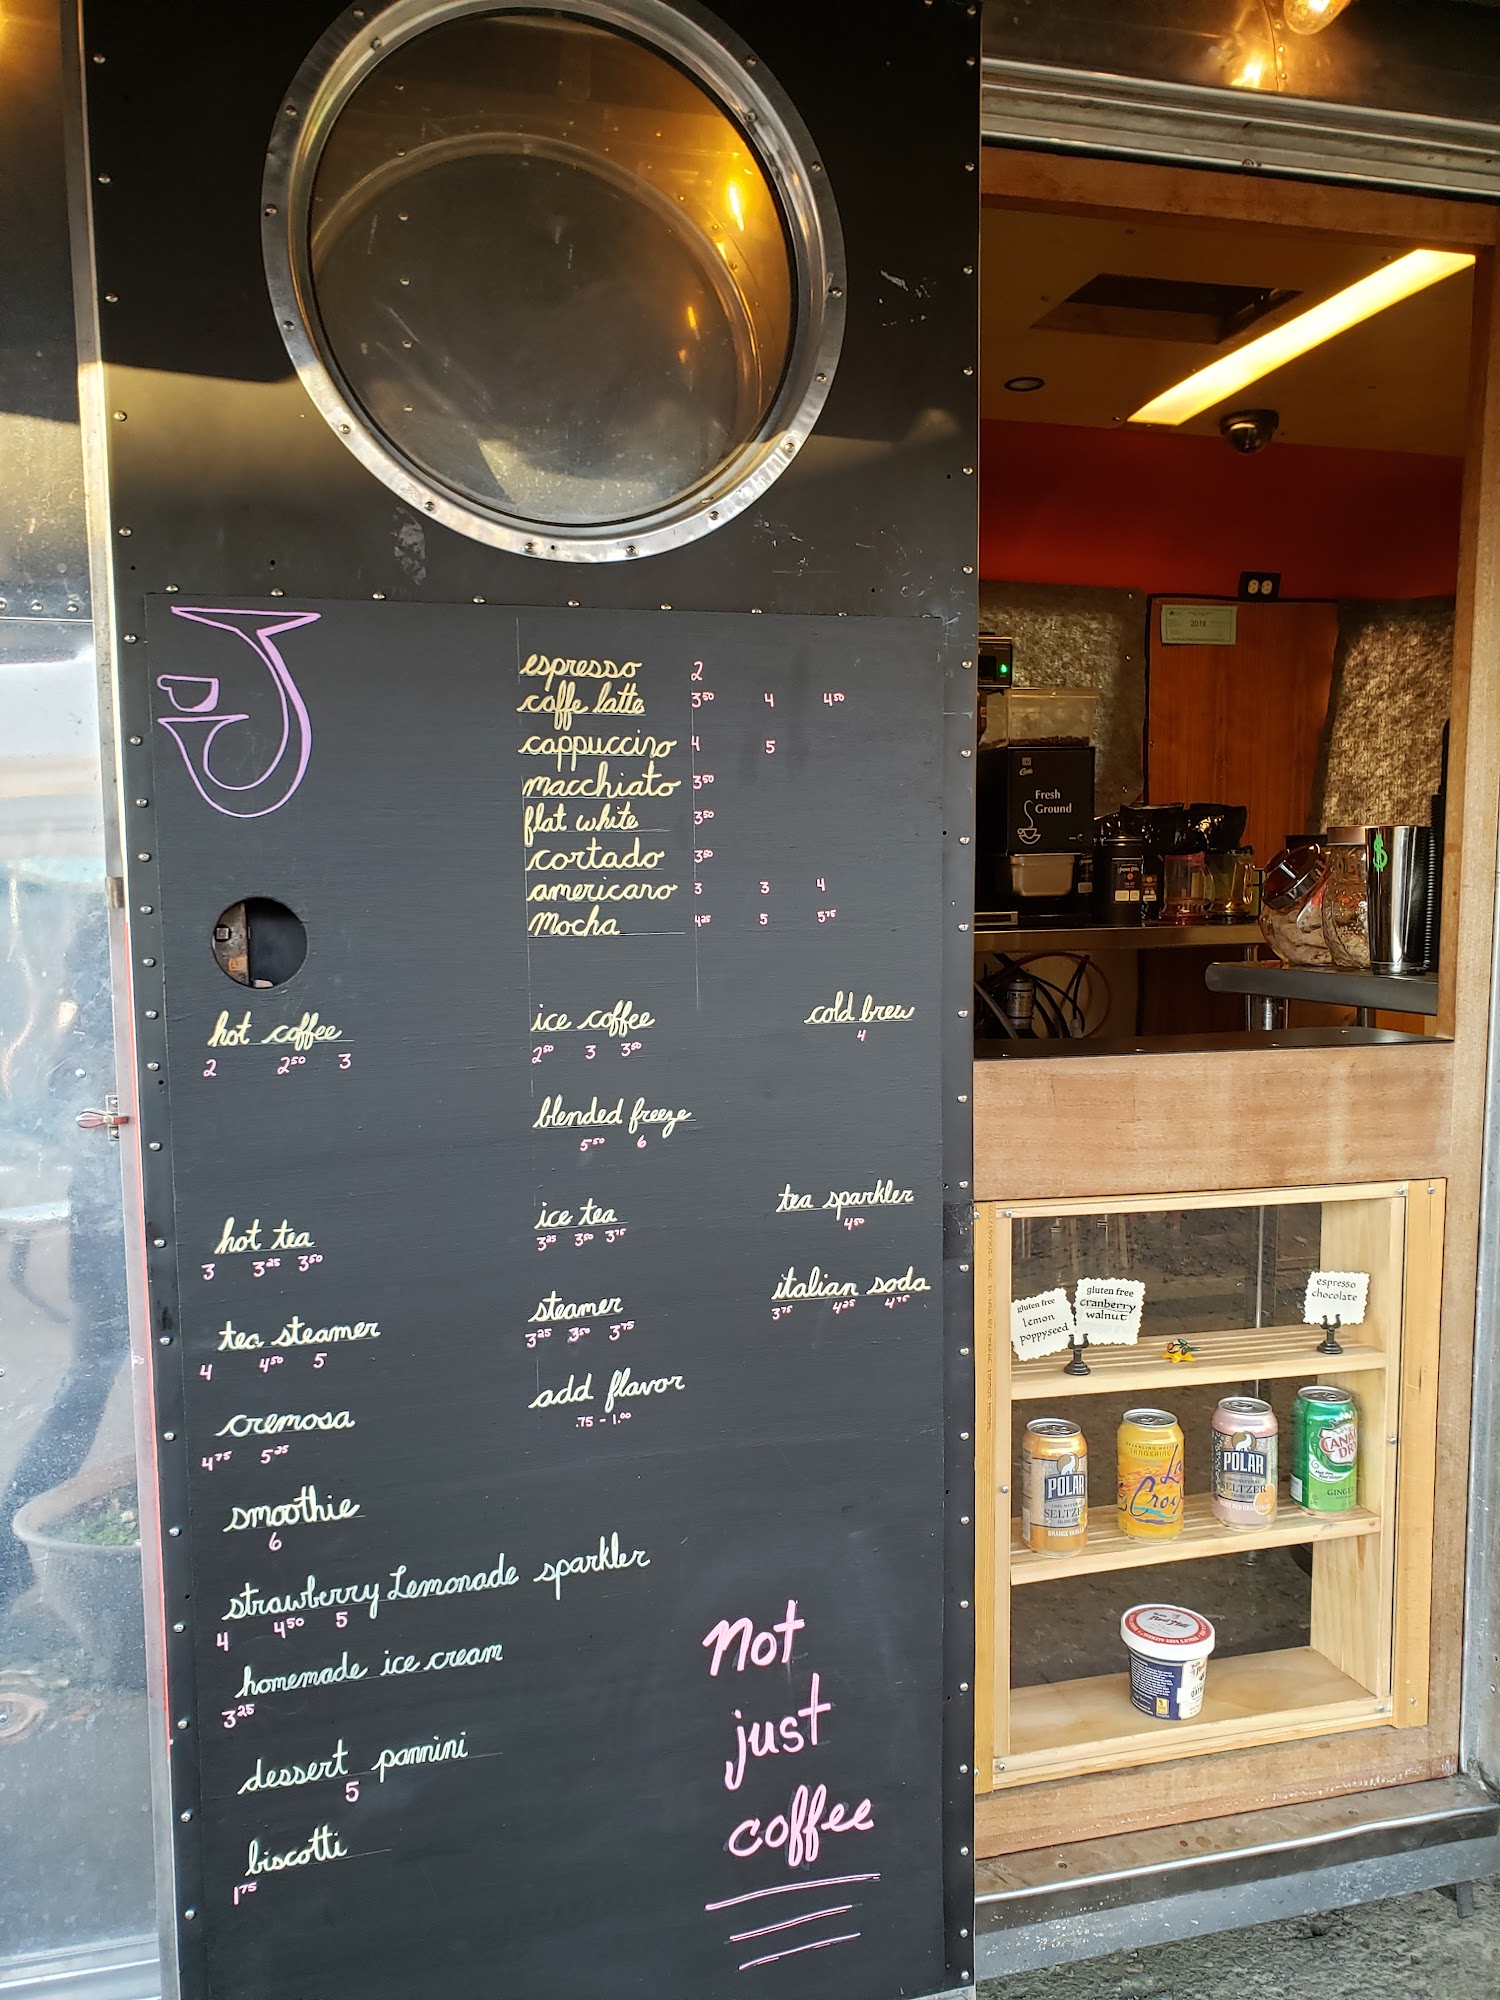 espresso 2
caffe latte 3⁵⁰ 4 4⁵⁰
cappuccino 4 5
macchiato 3⁵⁰
flat white 3⁵⁰
cortado 3⁵⁰
americano 3 3 4
mocha 4²⁵ 5 5⁷⁵
hot coffee
2 2⁵⁰ 3
ice coffee
2⁵⁰ 3 3⁵⁰
cold brew
4
blended freeze
5⁵⁰ 6
hot tea
3 3²⁵ 3⁵⁰
ice tea
3²⁵ 3⁵⁰ 3⁷⁵
tea sparkler
4⁵⁰
tea steamer
4 4⁵⁰ 5
steamer
3²⁵ 3⁵⁰ 3⁷⁵
italian soda
3⁷⁵ 4²⁵ 4⁷⁵
cremosa
4⁷⁵ 5²⁵
add flavor
.75 - 1.⁰⁰
smoothie
6
strawberry Lemonade sparkler
4 4⁵⁰ 5
homemade ice cream
3²⁵
dessert pannini
5
biscotti
1⁷⁵
Not
just
coffee
2019
Fresh
Ground
$
gluten free
lemon
poppyseed
gluten free
cranberry
walnut
espresso
chocolate
POLAR
100% NATURAL
SELTZER
ORANGE VANILLA
TANGERINE
LaCroix
POLAR
100% NATURAL
SELTZER
CANADA
DRY
GINGER